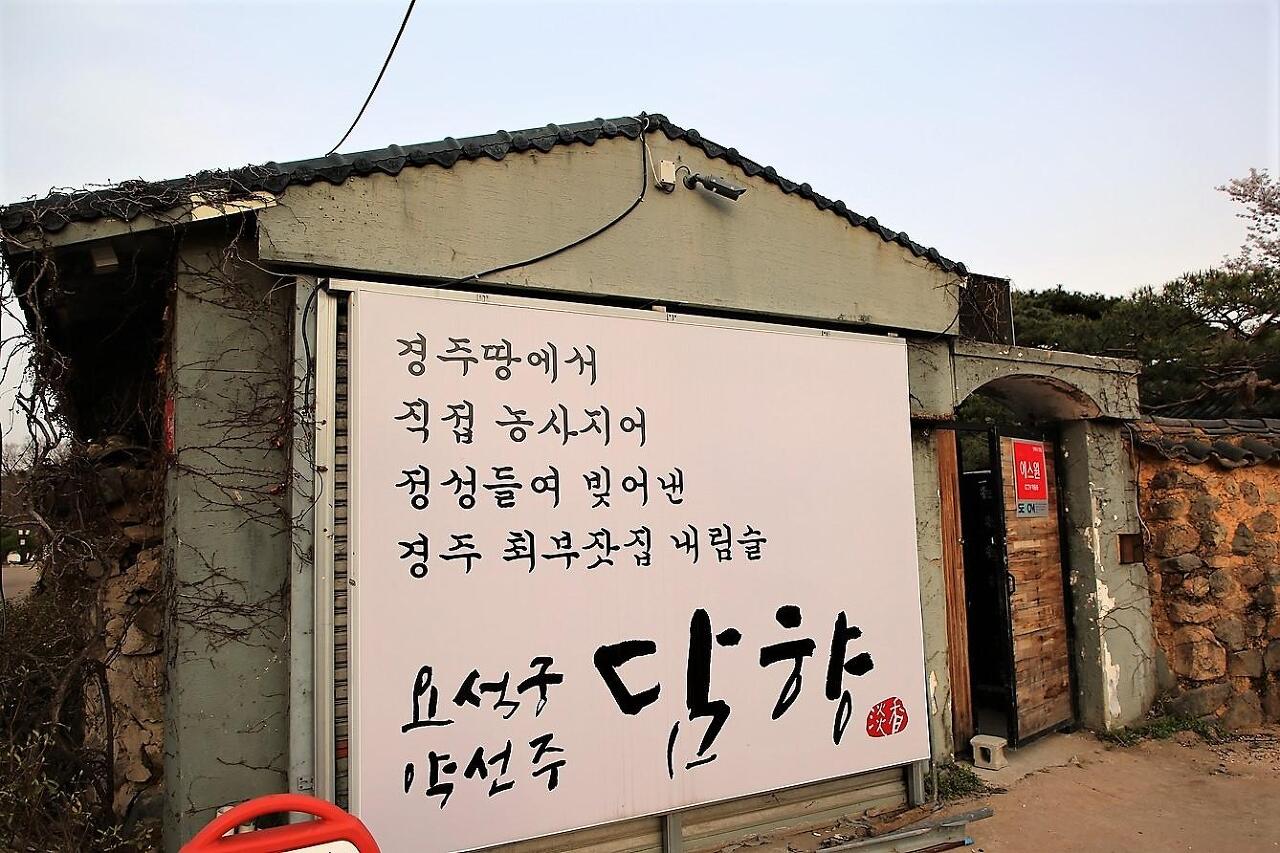 경주땅에서
직접 농사지어
정성들여 빚어낸
경주 최부잣집 내림술
요석궁
약선주
담향
淡香
에스원